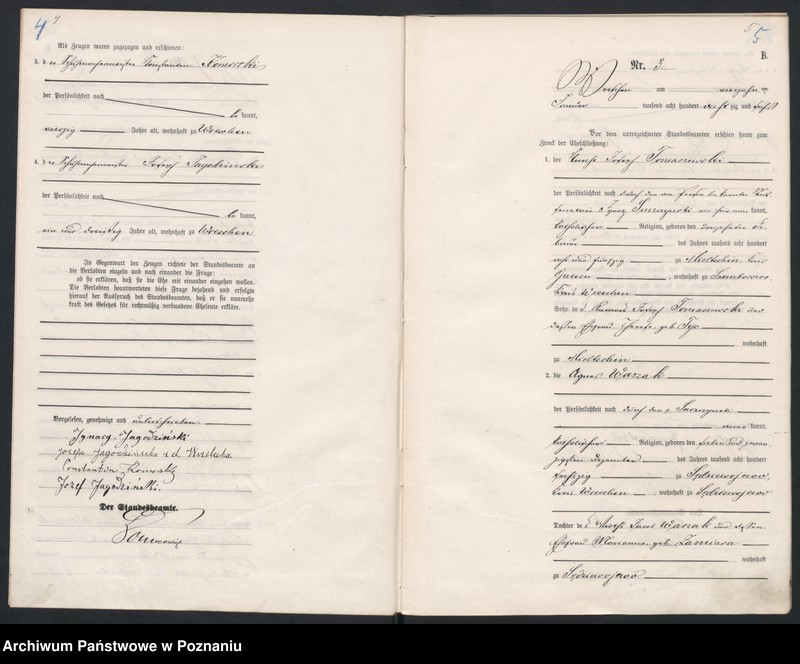 4
Als Zeugen waren zugezogen und erschienen:
3. der Schuhmachermeister Constantin Komorski
der Persönlichkeit nach
be kannt,
vierzig Jahre alt, wohnhaft zu Wreschen
4. der Schuhmachermeister Joseph Jagodzinski
der Persönlichkeit nach
be kannt,
ein und dreißig Jahre alt, wohnhaft zu Wreschen
In Gegenwart der Zeugen richtete der Standesbeamte an
die Verlobten einzeln und nach einander die Frage:
ob sie erklären, daß sie die Ehe mit einander eingehen wollen.
Die Verlobten beantworteten diese Frage bejahend und erfolgte
hierauf der Ausspruch des Standesbeamten, daß er sie nunmehr
kraft des Gesetzes für rechtmäßig verbundene Eheleute erkläre.
Vorgelesen, genehmigt und unterschrieben
Ignacy Jagodziński
Josefa Jagodzińska z d.
Constantin Komorski
Józef Jagodziński.
Der Standesbeamte.
5
B.
Nr. 3.
Wreschen am vierzehnten
Januar tausend acht hundert achtzig und sechs
Vor dem unterzeichneten Standesbeamten erschien heute zum
Zweck der Eheschließung:
1. der Knecht Joseph Tomaszewski
der Persönlichkeit nach durch den von Person bekannten
Ignaz kannt,
katholischer Religion, geboren den
des Jahres tausend acht hundert
acht und fünfzig zu Mieltschin Kreis
Gnesen, wohnhaft zu
Kreis Wreschen
Sohn des Joseph Tomaszewski und
dessen Ehefrau geb.
wohnhaft
zu Mieltschin
2. die Agnes Waszak
der Persönlichkeit nach durch den
kannt,
katholischer Religion, geboren den sieben und zwan
zigsten Dezember des Jahres tausend acht hundert
sechszig zu Sędziwojewo
Kreis Wreschen, wohnhaft zu Sędziwojewo
Tochter des Waszak und dessen
Ehefrau Marianna geb. Zamiara
wohnhaft
zu Sędziwojewo
Archiwum Państwowe w Poznaniu